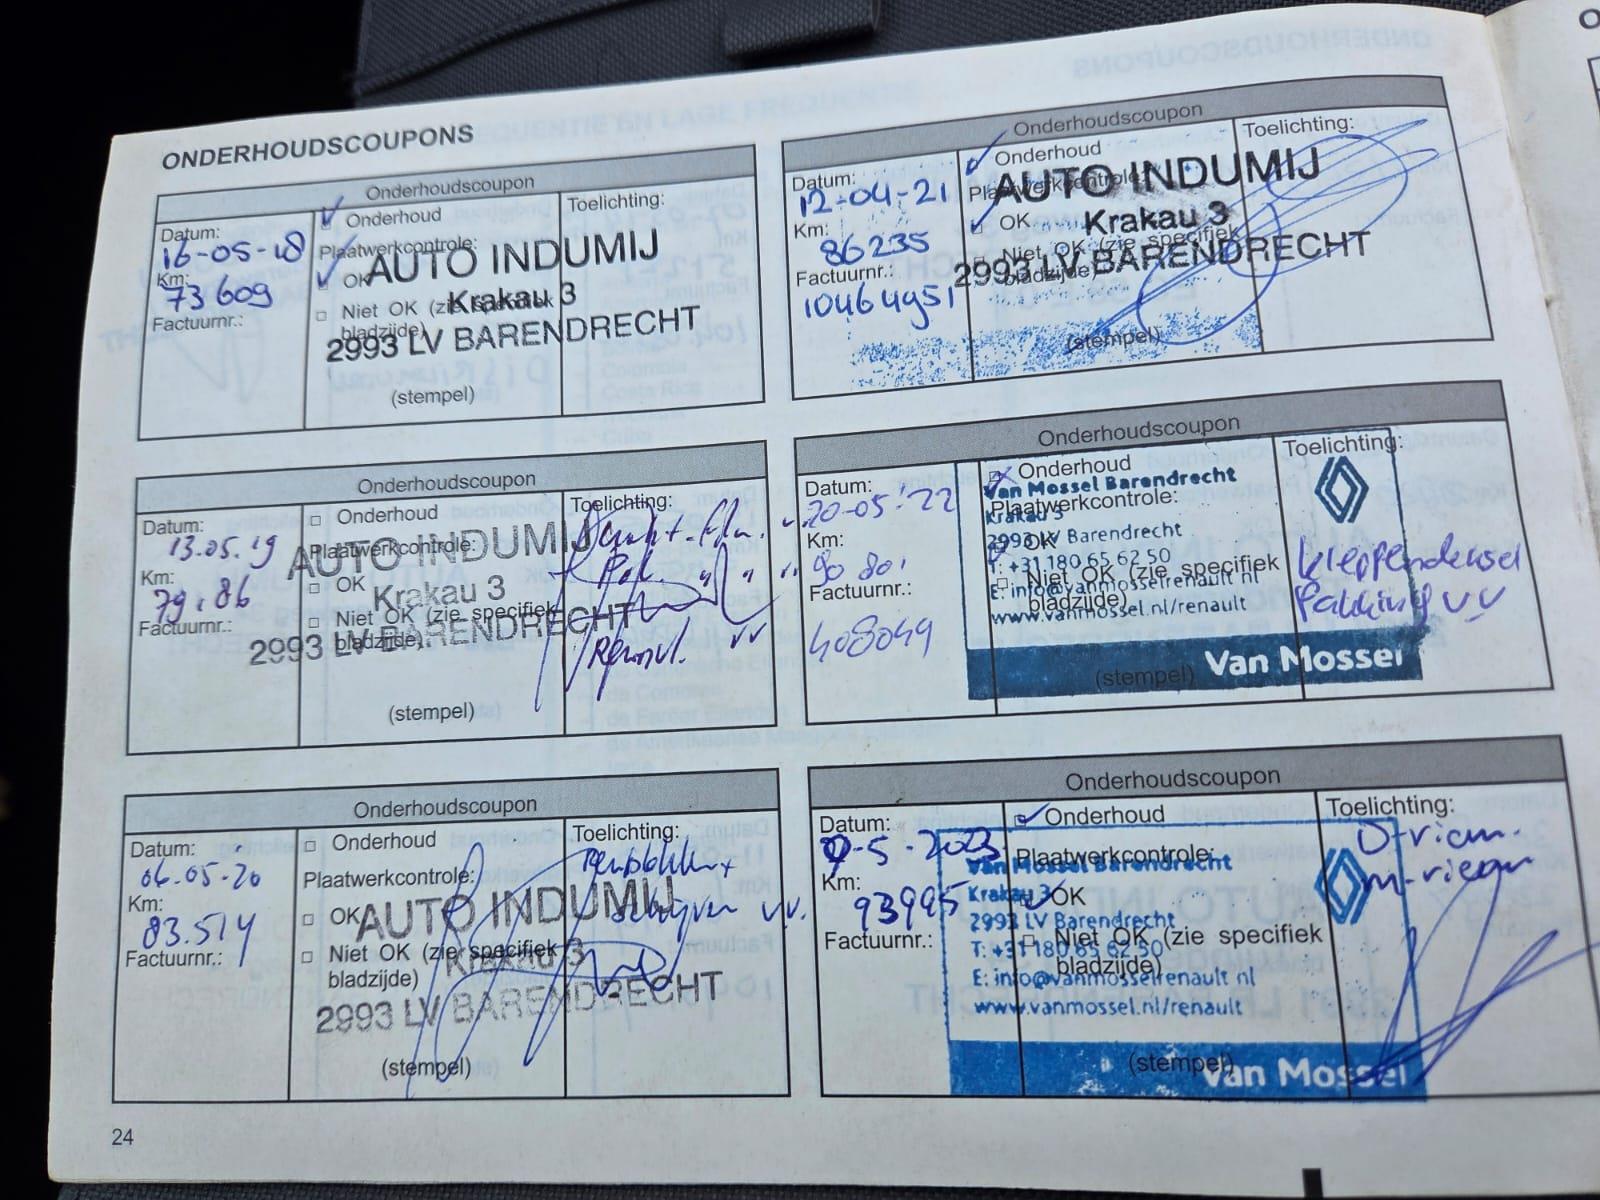 ONDERHOUDSCOUPONS
Onderhoudscoupon
Datum:
16-05-18
Km:
73609
Factuurnr.:
Onderhoud
Plaatwerkcontrole:
OK
Niet OK (zie specifiek
bladzijde)
AUTO INDUMIJ
Krakau 3
2993 LV BARENDRECHT
(stempel)
Toelichting:
Onderhoudscoupon
Datum:
13.05.19
Km:
79.186
Factuurnr.:
Onderhoud
Plaatwerkcontrole:
OK
Niet OK (zie specifiek
bladzijde)
AUTO INDUMIJ
Krakau 3
2993 LV BARENDRECHT
(stempel)
Toelichting:
Remvl. vv
Onderhoudscoupon
Datum:
06.05-20
Km:
83.514
Factuurnr.:
Onderhoud
Plaatwerkcontrole:
OK
Niet OK (zie specifiek
bladzijde)
AUTO INDUMIJ
Krakau 3
2993 LV BARENDRECHT
(stempel)
Toelichting:
Remblokken +
schijven vv.
24
Onderhoudscoupon
Datum:
12-04-21
Km:
86235
Factuurnr.:
10464951
Onderhoud
Plaatwerkcontrole:
OK
Niet OK (zie specifiek
bladzijde)
AUTO INDUMIJ
Krakau 3
2993 LV BARENDRECHT
(stempel)
Toelichting:
Onderhoudscoupon
Datum:
20-05-'22
Km:
90 801
Factuurnr.:
408049
Onderhoud
Plaatwerkcontrole:
OK
Niet OK (zie specifiek
bladzijde)
Van Mossel Barendrecht
Krakau 3
2993 LV Barendrecht
T: +31 180 65 62 50
E: info@vanmosselrenault.nl
www.vanmossel.nl/renault
Van Mossel
(stempel)
Toelichting:
kleppendeksel
Pakking vv
Onderhoudscoupon
Datum:
9-5-2023
Km:
93995
Factuurnr.:
Onderhoud
Plaatwerkcontrole:
OK
Niet OK (zie specifiek
bladzijde)
Van Mossel Barendrecht
Krakau 3
2993 LV Barendrecht
T: +31 180 65 62 50
E: info@vanmosselrenault.nl
www.vanmossel.nl/renault
Van Mossel
(stempel)
Toelichting:
D-riem.
m-riem